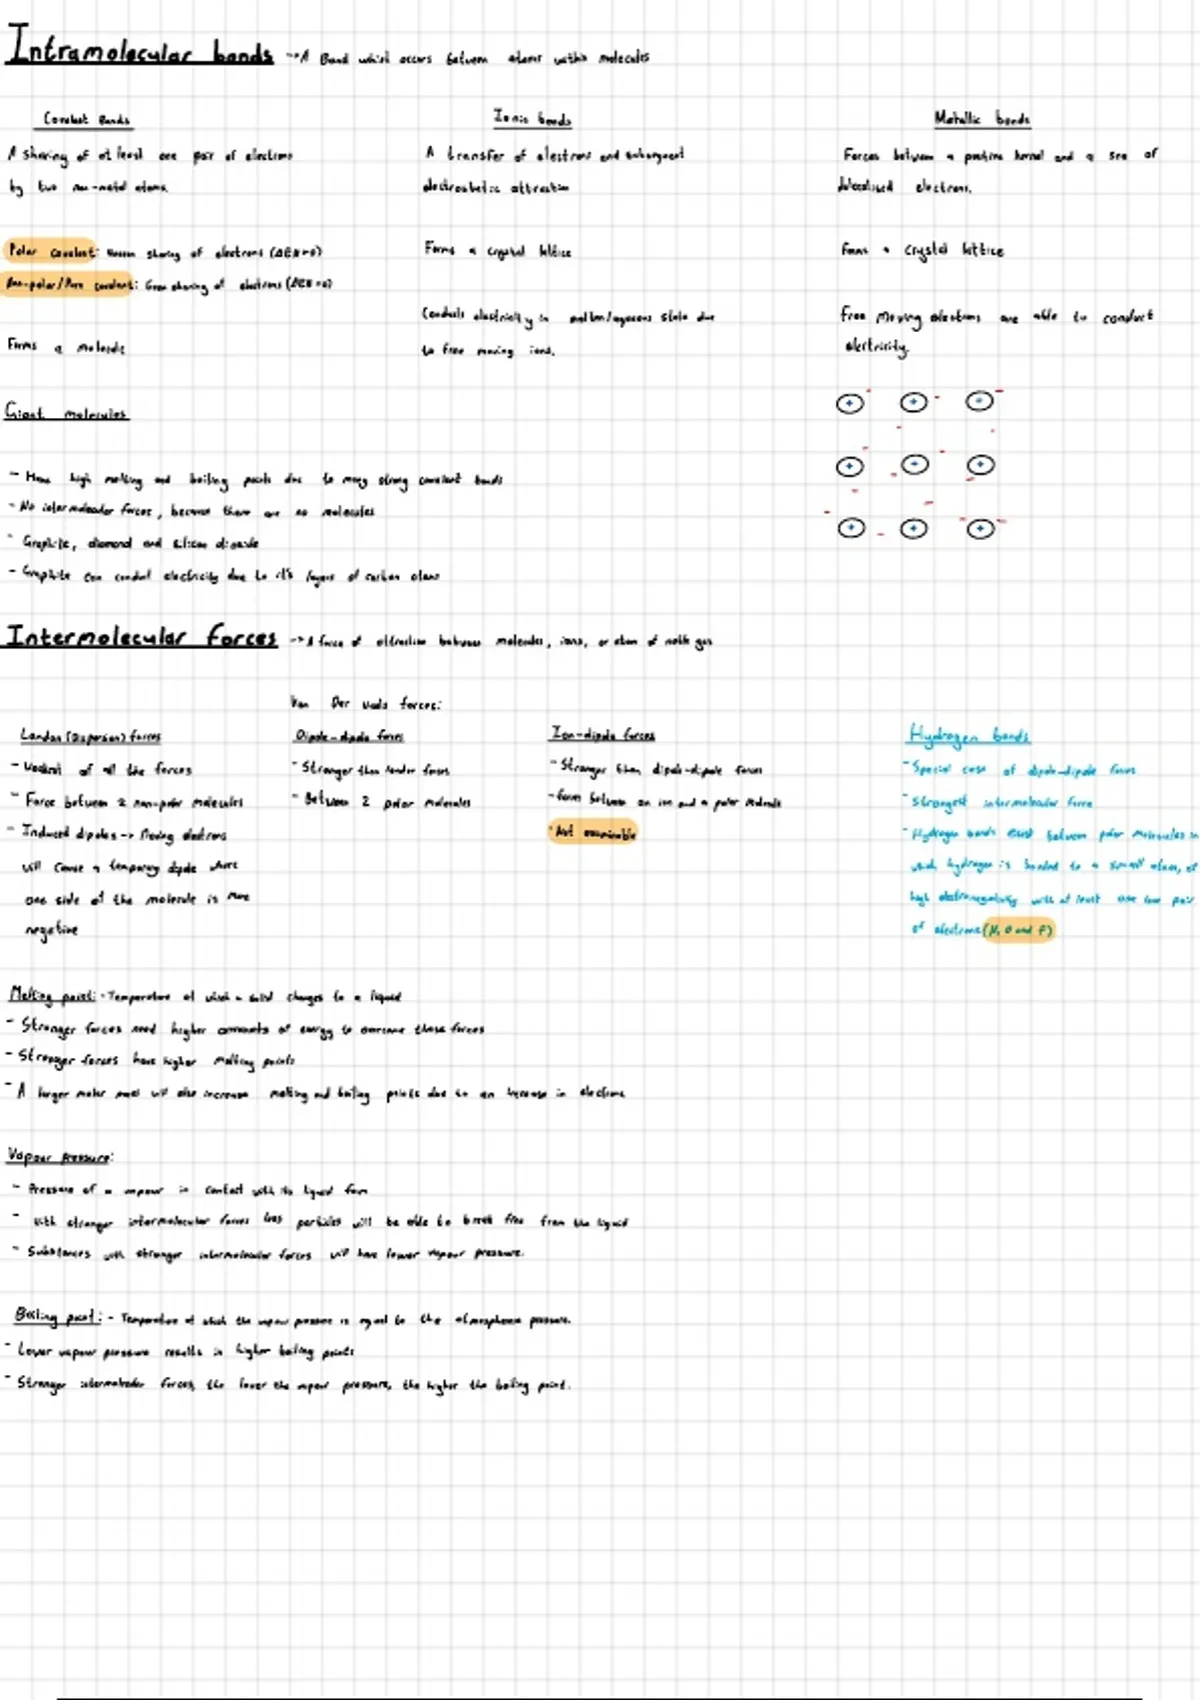 Intramolecular bonds → A Bond which occurs between atoms within molecules
Covalent Bonds
A sharing of at least one pair of electrons
by two non-metal atoms.
Polar covalent: Uneven sharing of electrons (ΔEN>0)
Non-polar/Pure covalent: Even sharing of electrons (ΔEN=0)
Forms a molecule
Ionic bonds
A transfer of electrons and subsequent
electrostatic attraction
Forms a crystal lattice
Conducts electricity in molten/aqueous state due
to free moving ions.
Metallic bonds
Forces between a positive kernel and a sea of
delocalised electrons.
Forms a crystal lattice
Free moving electrons are able to conduct
electricity.
Giant molecules
- Have high melting and boiling points due to many strong covalent bonds
- No intermolecular forces, because there are no molecules
- Graphite, diamond and silicon dioxide
- Graphite can conduct electricity due to it's layers of carbon atoms
Intermolecular forces → A force of attraction between molecules, ions, or atom of noble gas
Van Der Waals forces:
London (Dispersion) forces
- Weakest of all the forces
- Force between 2 non-polar molecules
- Induced dipoles → Moving electrons
will cause a temporary dipole where
one side of the molecule is more
negative
Dipole-dipole forces
- Stronger than london forces
- Between 2 polar molecules
Ion-dipole forces
- Stronger than dipole-dipole forces
- form between an ion and a polar molecule
- Not examinable
Hydrogen bonds
- Special case of dipole-dipole forces
- Strongest intermolecular force
- Hydrogen bonds exist between polar molecules in
which hydrogen is bonded to a small atom, of
high electronegativity with at least one lone pair
of electrons (N, O and F)
Melting point: - Temperature at which a solid changes to a liquid
- Stronger forces need higher amounts of energy to overcome these forces
- Stronger forces have higher melting points
- A larger molar mass will also increase melting and boiling points due to an increase in electrons
Vapour pressure:
- Pressure of a vapour in contact with its liquid form
- With stronger intermolecular forces less particles will be able to break free from the liquid
- Substances with stronger intermolecular forces will have lower vapour pressure.
Boiling point: - Temperature at which the vapour pressure is equal to the atmospheric pressure.
- Lower vapour pressure results in higher boiling points
- Stronger intermolecular forces, the lower the vapour pressure, the higher the boiling point.